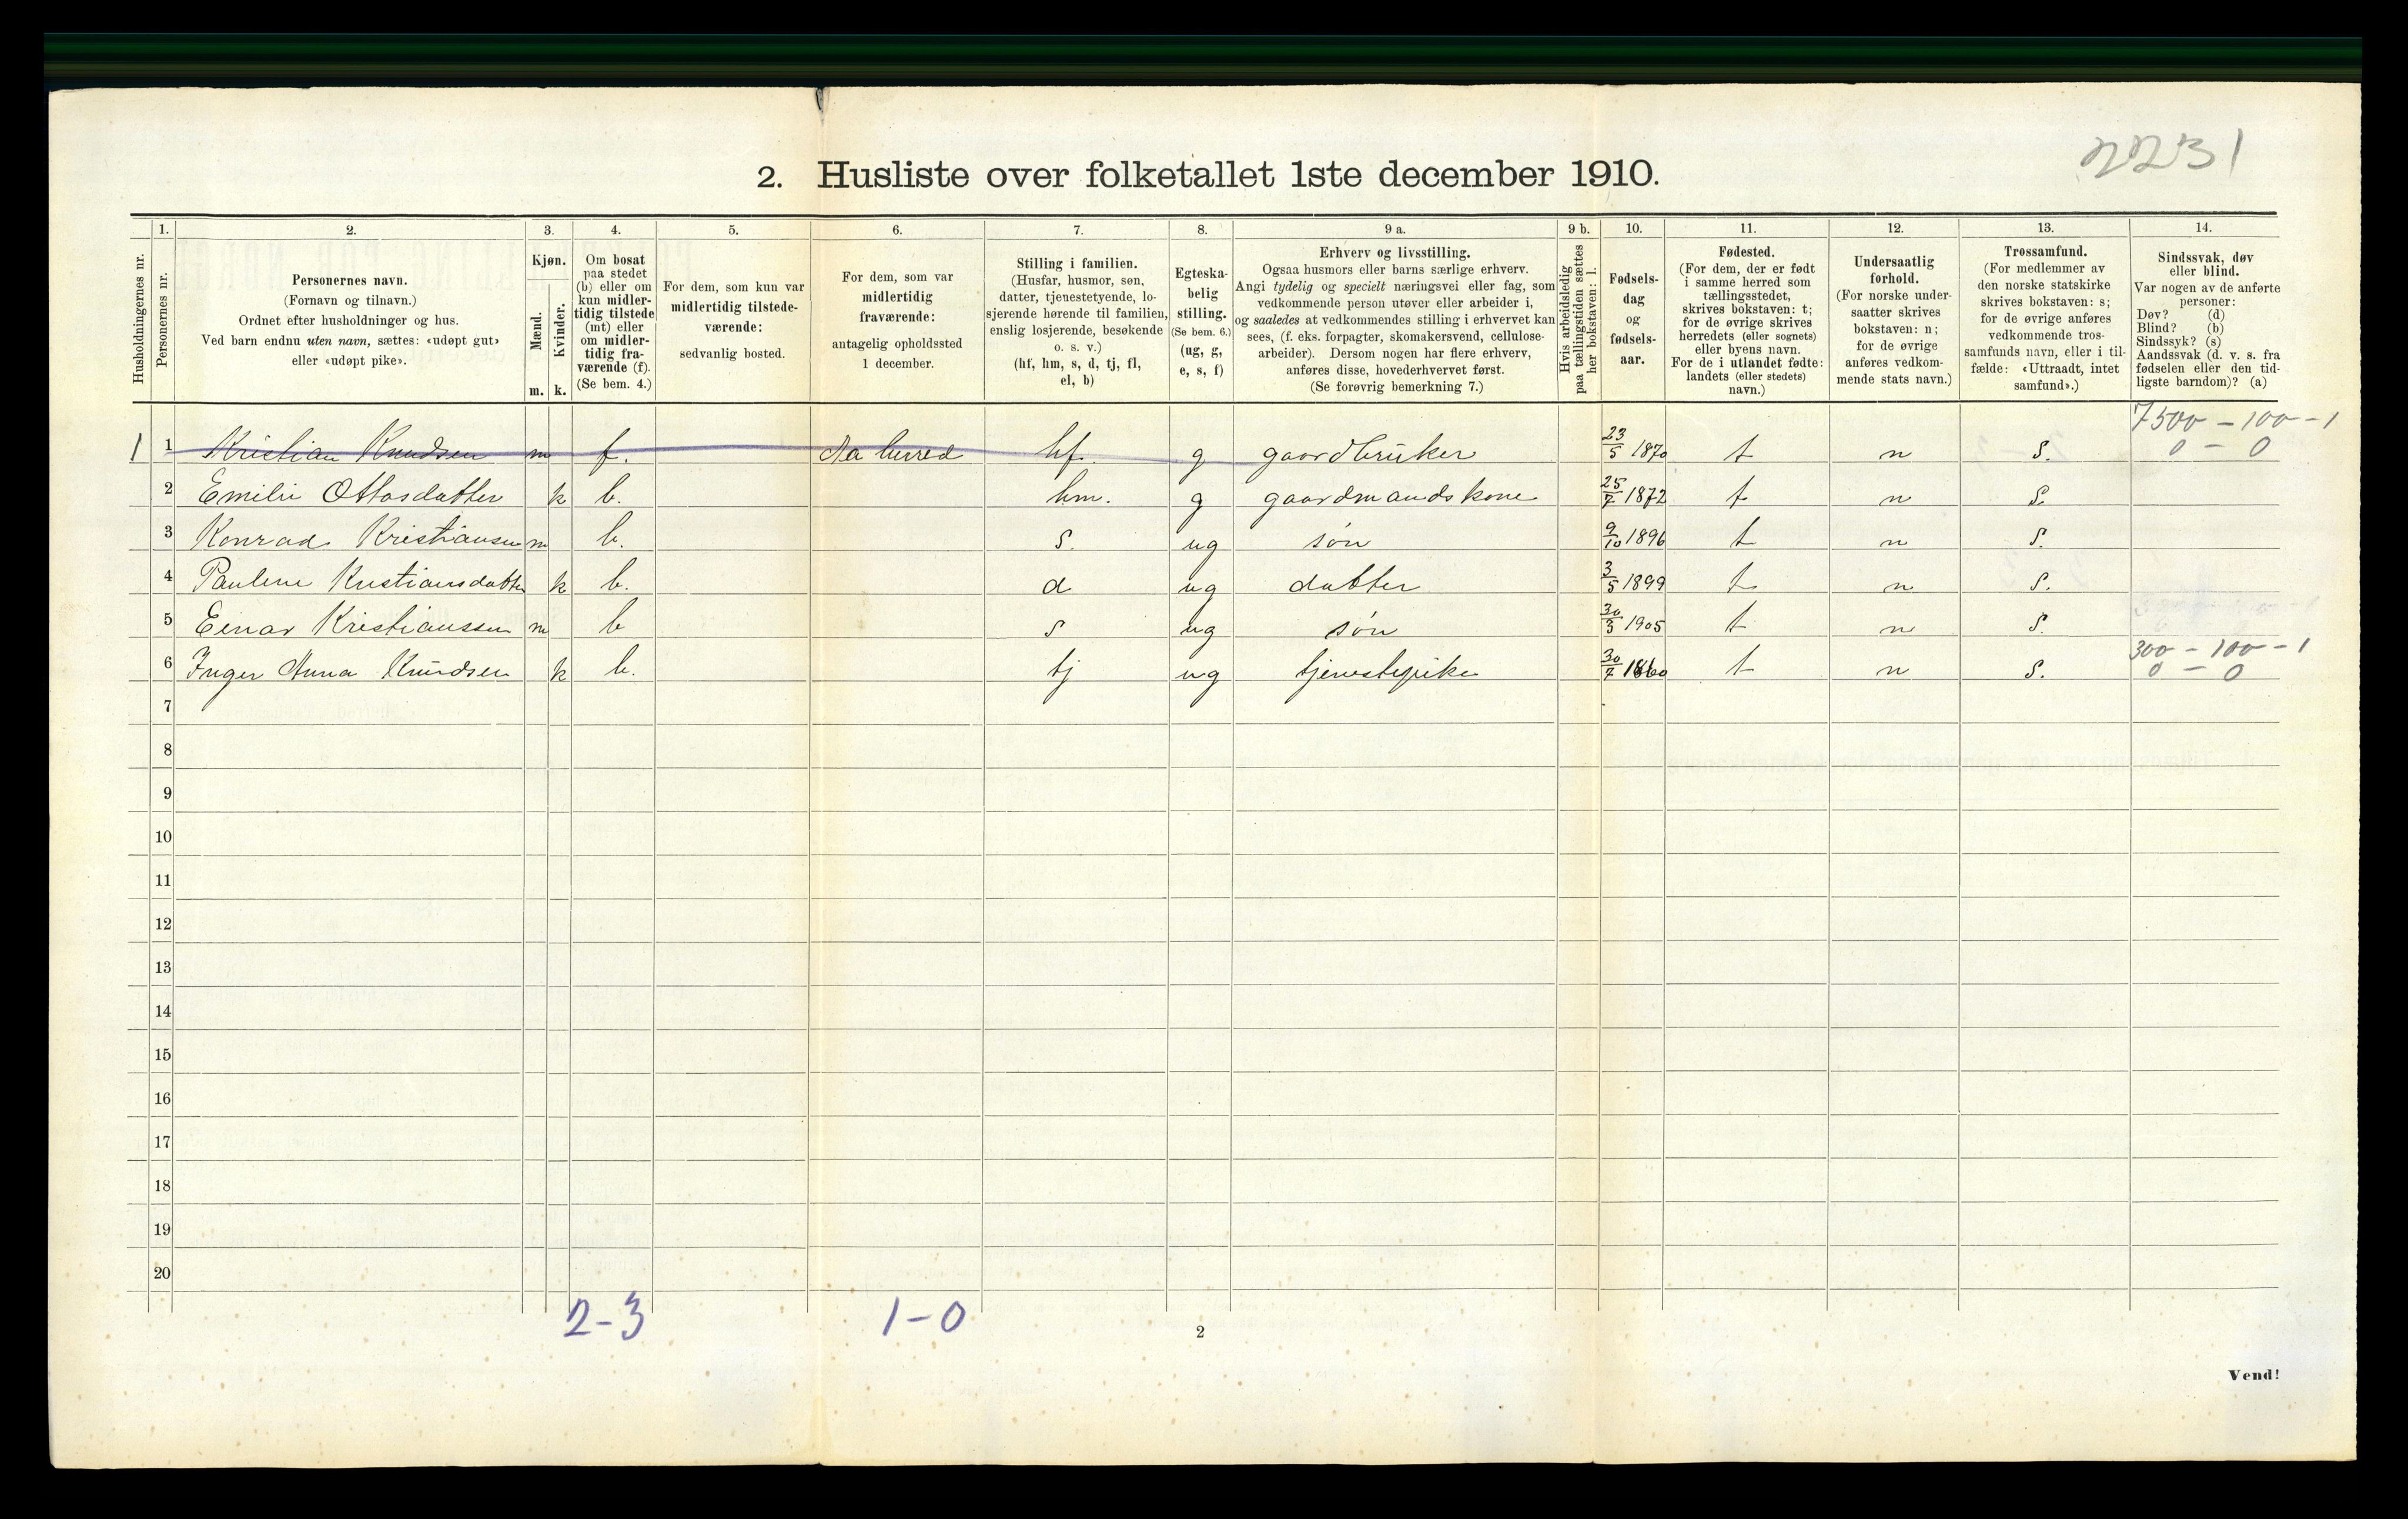 2231
2. Husliste over folketallet 1ste december 1910.
Husholdningernes nr.
1.
Personernes nr.
2.
Personernes navn.
(Fornavn og tilnavn.)
Ordnet efter husholdninger og hus.
Ved barn endnu uten navn, sættes: «udøpt gut»
eller «udøpt pike».
3.
Kjøn.
Mænd.
Kvinder.
m. k.
4.
Om bosat
paa stedet
(b) eller om
kun midler-
tidig tilstede
(mt) eller
om midler-
tidig fra-
værende (f).
(Se bem. 4.)
5.
For dem, som kun var
midlertidig tilstede-
værende:
sedvanlig bosted.
6.
For dem, som var
midlertidig
fraværende:
antagelig opholdssted
1 december.
7.
Stilling i familien.
(Husfar, husmor, søn,
datter, tjenestetyende, lo-
sjerende hørende til familien,
enslig losjerende, besøkende
o. s. v.)
(hf, hm, s, d, tj, fl,
el, b)
8.
Egteska-
belig
stilling.
(Se bem. 6.)
(ug, g,
e, s, f)
9 a.
Erhverv og livsstilling.
Ogsaa husmors eller barns særlige erhverv.
Angi tydelig og specielt næringsvei eller fag, som
vedkommende person utøver eller arbeider i,
og saaledes at vedkommendes stilling i erhvervet kan
sees, (f. eks. forpagter, skomakersvend, cellulose-
arbeider). Dersom nogen har flere erhverv,
anføres disse, hovederhvervet først.
(Se forøvrig bemerkning 7.)
9 b.
Hvis arbeidsledig
paa tællingstiden sættes
her bokstaven: l.
10.
Fødsels-
dag
og
fødsels-
aar.
11.
Fødested.
(For dem, der er født
i samme herred som
tællingsstedet,
skrives bokstaven: t;
for de øvrige skrives
herredets (eller sognets)
eller byens navn.
For de i utlandet fødte:
landets (eller stedets)
navn.)
12.
Undersaatlig
forhold.
(For norske under-
saatter skrives
bokstaven: n;
for de øvrige
anføres vedkom-
mende stats navn.)
13.
Trossamfund.
(For medlemmer av
den norske statskirke
skrives bokstaven: s;
for de øvrige anføres
vedkommende tros-
samfunds navn, eller i til-
fælde: «Uttraadt, intet
samfund».)
14.
Sindssvak, døv
eller blind.
Var nogen av de anførte
personer:
Døv? (d)
Blind? (b)
Sindssyk? (s)
Aandssvak (d. v. s. fra
fødselen eller den tid-
ligste barndom)? (a)
7500 - 100 - 1
1 1 Kristian Knudsen m f. herred hf. g gaardbruker 23/5 1870 t n s. 0 - 0
2 Emilie Ottosdatter k b. hm. g gaardmandskone 25/7 1872 t n s.
3 Konrad Kristiansen m b. s. ug søn 9/10 1896 t n s.
4 Pauline Kristiansdatter k b. d ug datter 3/5 1899 t n s.
5 Einar Kristianssen m b s ug søn 30/3 1905 t n s.
300 - 100 - 1
6 Inger Anna Knudsen k b. tj ug tjenestepike 30/7 1860 t n s. 0 - 0
7
8
9
10
11
12
13
14
15
16
17
18
19
20
2-3 1-0
2
Vend!